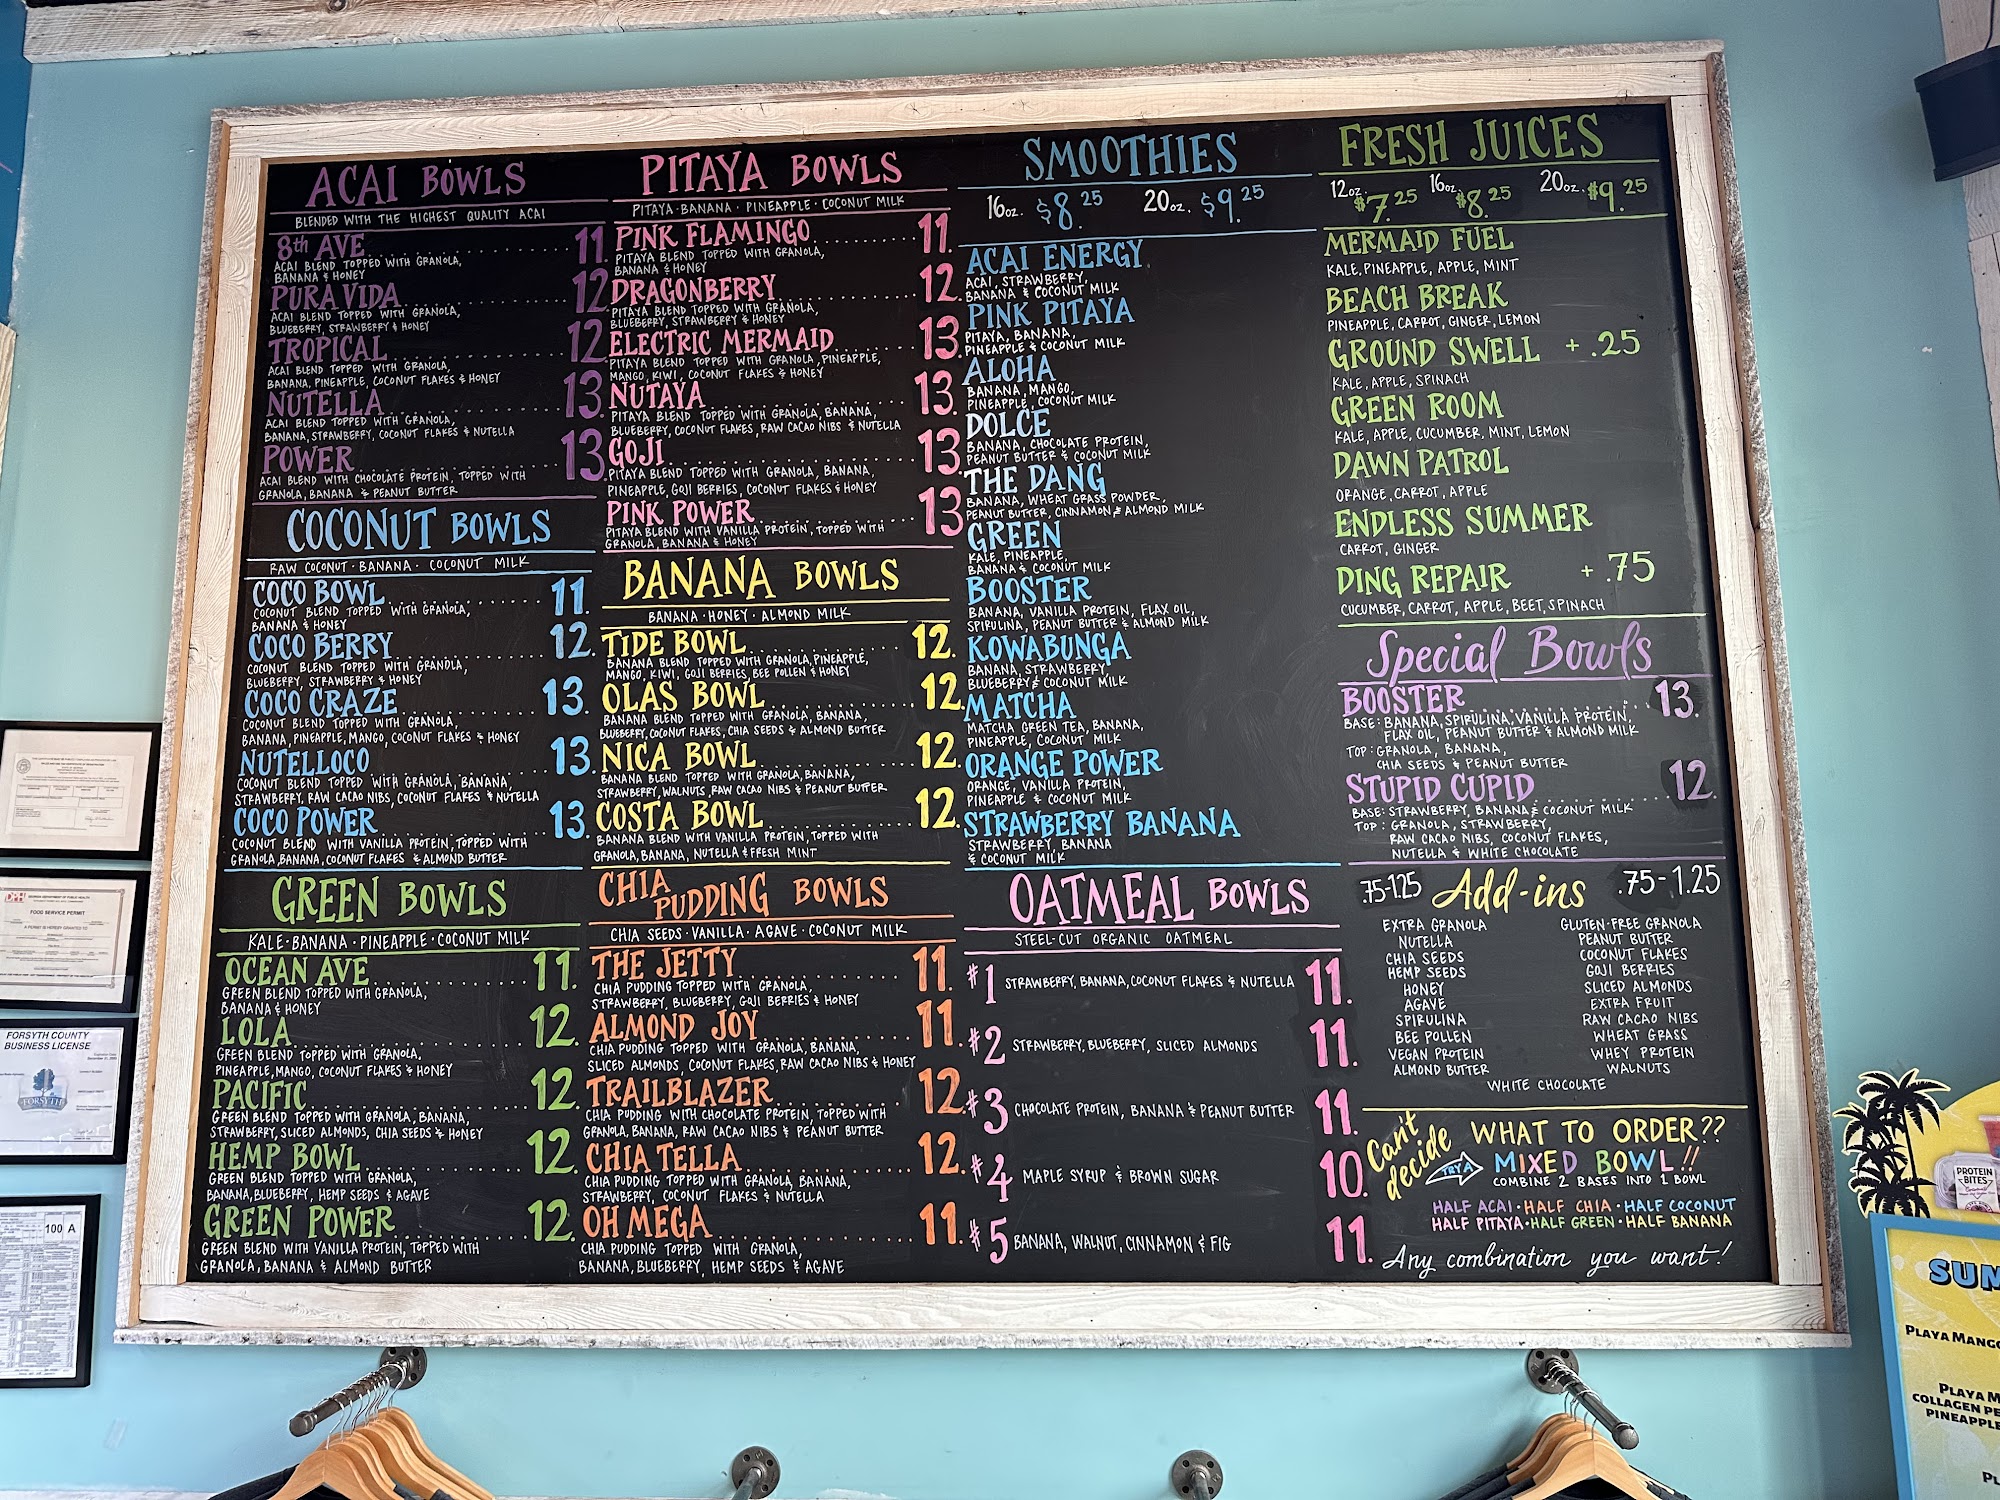 ACAI BOWLS
BLENDED WITH THE HIGHEST QUALITY ACAI
8th AVE 11.
ACAI BLEND TOPPED WITH GRANOLA,
BANANA & HONEY
PURA VIDA 12
ACAI BLEND TOPPED WITH GRANOLA,
BLUEBERRY, STRAWBERRY & HONEY
TROPICAL 12
ACAI BLEND TOPPED WITH GRANOLA,
BANANA, PINEAPPLE, COCONUT FLAKES & HONEY
NUTELLA 13
ACAI BLEND TOPPED WITH GRANOLA,
BANANA, STRAWBERRY, COCONUT FLAKES & NUTELLA
POWER 13
ACAI BLEND WITH CHOCOLATE PROTEIN, TOPPED WITH
GRANOLA, BANANA & PEANUT BUTTER
COCONUT BOWLS
RAW COCONUT · BANANA · COCONUT MILK
COCO BOWL 11.
COCONUT BLEND TOPPED WITH GRANOLA,
BANANA & HONEY
COCO BERRY 12.
COCONUT BLEND TOPPED WITH GRANOLA,
BLUEBERRY, STRAWBERRY & HONEY
COCO CRAZE 13.
COCONUT BLEND TOPPED WITH GRANOLA,
BANANA, PINEAPPLE, MANGO, COCONUT FLAKES & HONEY
NUTELLOCO 13.
COCONUT BLEND TOPPED WITH GRANOLA, BANANA,
STRAWBERRY, RAW CACAO NIBS, COCONUT FLAKES & NUTELLA
COCO POWER 13.
COCONUT BLEND WITH VANILLA PROTEIN, TOPPED WITH
GRANOLA, BANANA, COCONUT FLAKES & ALMOND BUTTER
GREEN BOWLS
KALE · BANANA · PINEAPPLE · COCONUT MILK
OCEAN AVE 11.
GREEN BLEND TOPPED WITH GRANOLA,
BANANA & HONEY
LOLA 12.
GREEN BLEND TOPPED WITH GRANOLA,
PINEAPPLE, MANGO, COCONUT FLAKES & HONEY
PACIFIC 12.
GREEN BLEND TOPPED WITH GRANOLA, BANANA,
STRAWBERRY, SLICED ALMONDS, CHIA SEEDS & HONEY
HEMP BOWL 12.
GREEN BLEND TOPPED WITH GRANOLA,
BANANA, BLUEBERRY, HEMP SEEDS & AGAVE
GREEN POWER 12.
GREEN BLEND WITH VANILLA PROTEIN, TOPPED WITH
GRANOLA, BANANA & ALMOND BUTTER
PITAYA BOWLS
PITAYA · BANANA · PINEAPPLE · COCONUT MILK
PINK FLAMINGO 11.
PITAYA BLEND TOPPED WITH GRANOLA,
BANANA & HONEY
DRAGONBERRY 12.
PITAYA BLEND TOPPED WITH GRANOLA,
BLUEBERRY, STRAWBERRY & HONEY
ELECTRIC MERMAID 13.
PITAYA BLEND TOPPED WITH GRANOLA, PINEAPPLE,
MANGO, KIWI, COCONUT FLAKES & HONEY
NUTAYA 13.
PITAYA BLEND TOPPED WITH GRANOLA, BANANA,
BLUEBERRY, COCONUT FLAKES, RAW CACAO NIBS & NUTELLA
GOJI 13.
PITAYA BLEND TOPPED WITH GRANOLA, BANANA,
PINEAPPLE, GOJI BERRIES, COCONUT FLAKES & HONEY
PINK POWER 13
PITAYA BLEND WITH VANILLA PROTEIN, TOPPED WITH
GRANOLA, BANANA & HONEY
BANANA BOWLS
BANANA · HONEY · ALMOND MILK
TIDE BOWL 12.
BANANA BLEND TOPPED WITH GRANOLA, PINEAPPLE,
MANGO, KIWI, GOJI BERRIES, BEE POLLEN & HONEY
OLAS BOWL 12.
BANANA BLEND TOPPED WITH GRANOLA, BANANA,
BLUEBERRY, COCONUT FLAKES, CHIA SEEDS & ALMOND BUTTER
NICA BOWL 12.
BANANA BLEND TOPPED WITH GRANOLA, BANANA,
STRAWBERRY, WALNUTS, RAW CACAO NIBS & PEANUT BUTTER
COSTA BOWL 12.
BANANA BLEND WITH VANILLA PROTEIN, TOPPED WITH
GRANOLA, BANANA, NUTELLA & FRESH MINT
CHIA PUDDING BOWLS
CHIA SEEDS · VANILLA · AGAVE · COCONUT MILK
THE JETTY 11.
CHIA PUDDING TOPPED WITH GRANOLA,
STRAWBERRY, BLUEBERRY, GOJI BERRIES & HONEY
ALMOND JOY 11.
CHIA PUDDING TOPPED WITH GRANOLA, BANANA,
SLICED ALMONDS, COCONUT FLAKES, RAW CACAO NIBS & HONEY
TRAILBLAZER 12.
CHIA PUDDING WITH CHOCOLATE PROTEIN, TOPPED WITH
GRANOLA, BANANA, RAW CACAO NIBS & PEANUT BUTTER
CHIA TELLA 12.
CHIA PUDDING TOPPED WITH GRANOLA, BANANA,
STRAWBERRY, COCONUT FLAKES & NUTELLA
OH MEGA 11.
CHIA PUDDING TOPPED WITH GRANOLA,
BANANA, BLUEBERRY, HEMP SEEDS & AGAVE
SMOOTHIES
16oz. $8.25 20oz. $9.25
ACAI ENERGY
ACAI, STRAWBERRY,
BANANA & COCONUT MILK
PINK PITAYA
PITAYA, BANANA,
PINEAPPLE & COCONUT MILK
ALOHA
BANANA, MANGO,
PINEAPPLE, COCONUT MILK
DOLCE
BANANA, CHOCOLATE PROTEIN,
PEANUT BUTTER & COCONUT MILK
THE DANG
BANANA, WHEAT GRASS POWDER,
PEANUT BUTTER, CINNAMON & ALMOND MILK
GREEN
KALE, PINEAPPLE,
BANANA & COCONUT MILK
BOOSTER
BANANA, VANILLA PROTEIN, FLAX OIL,
SPIRULINA, PEANUT BUTTER & ALMOND MILK
KOWABUNGA
BANANA, STRAWBERRY
BLUEBERRY & COCONUT MILK
MATCHA
MATCHA GREEN TEA, BANANA,
PINEAPPLE, COCONUT MILK
ORANGE POWER
ORANGE, VANILLA PROTEIN,
PINEAPPLE & COCONUT MILK
STRAWBERRY BANANA
STRAWBERRY, BANANA
& COCONUT MILK
OATMEAL BOWLS
STEEL-CUT ORGANIC OATMEAL
#1 STRAWBERRY, BANANA, COCONUT FLAKES & NUTELLA 11.
#2 STRAWBERRY, BLUEBERRY, SLICED ALMONDS 11.
#3 CHOCOLATE PROTEIN, BANANA & PEANUT BUTTER 11.
#4 MAPLE SYRUP & BROWN SUGAR 10.
#5 BANANA, WALNUT, CINNAMON & FIG 11.
FRESH JUICES
12oz. $7.25 16oz. $8.25 20oz. $9.25
MERMAID FUEL
KALE, PINEAPPLE, APPLE, MINT
BEACH BREAK
PINEAPPLE, CARROT, GINGER, LEMON
GROUND SWELL + .25
KALE, APPLE, SPINACH
GREEN ROOM
KALE, APPLE, CUCUMBER, MINT, LEMON
DAWN PATROL
ORANGE, CARROT, APPLE
ENDLESS SUMMER
CARROT, GINGER
DING REPAIR + .75
CUCUMBER, CARROT, APPLE, BEET, SPINACH
Special Bowls
BOOSTER 13.
BASE: BANANA, SPIRULINA, VANILLA PROTEIN,
FLAX OIL, PEANUT BUTTER & ALMOND MILK
TOP: GRANOLA, BANANA,
CHIA SEEDS & PEANUT BUTTER
STUPID CUPID 12.
BASE: STRAWBERRY, BANANA & COCONUT MILK
TOP: GRANOLA, STRAWBERRY,
RAW CACAO NIBS, COCONUT FLAKES,
NUTELLA & WHITE CHOCOLATE
.75-1.25 Add-ins .75-1.25
EXTRA GRANOLA GLUTEN-FREE GRANOLA
NUTELLA PEANUT BUTTER
CHIA SEEDS COCONUT FLAKES
HEMP SEEDS GOJI BERRIES
HONEY SLICED ALMONDS
AGAVE EXTRA FRUIT
SPIRULINA RAW CACAO NIBS
BEE POLLEN WHEAT GRASS
VEGAN PROTEIN WHEY PROTEIN
ALMOND BUTTER WALNUTS
WHITE CHOCOLATE
Can't decide WHAT TO ORDER??
TRY A MIXED BOWL!!
COMBINE 2 BASES INTO 1 BOWL
HALF ACAI · HALF CHIA · HALF COCONUT
HALF PITAYA · HALF GREEN · HALF BANANA
Any combination you want!
FOOD SERVICE PERMIT
FORSYTH COUNTY
BUSINESS LICENSE
FORSYTH
100 A
PROTEIN
BITES
SUM
PLAYA MANGO
PLAYA M
COLLAGEN PE
PINEAPPLE